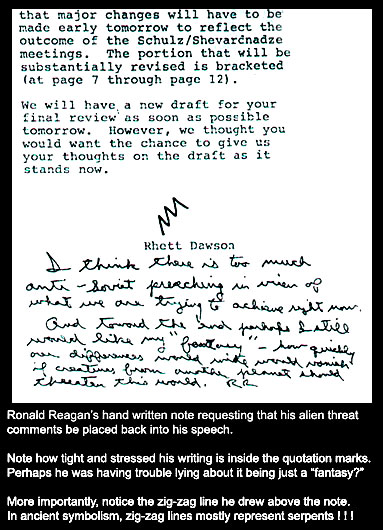 that major changes will have to be
made early tomorrow to reflect the
outcome of the Schulz/Shevardnadze
meetings. The portion that will be
substantially revised is bracketed
(at page 7 through page 12).
We will have a new draft for your
final review as soon as possible
tomorrow. However, we thought you
would want the chance to give us
your thoughts on the draft as it
stands now.
Rhett Dawson
I think there is too much
anti-Soviet preaching in view of
what we are trying to achieve right now.
And toward the end perhaps I still
would like my "fantasy" – how quickly
our differences world wide would vanish
if creatures from another planet should
threaten this world. RR
Ronald Reagan's hand written note requesting that his alien threat
comments be placed back into his speech.
Note how tight and stressed his writing is inside the quotation marks.
Perhaps he was having trouble lying about it being just a "fantasy?"
More importantly, notice the zig-zag line he drew above the note.
In ancient symbolism, zig-zag lines mostly represent serpents ! ! !